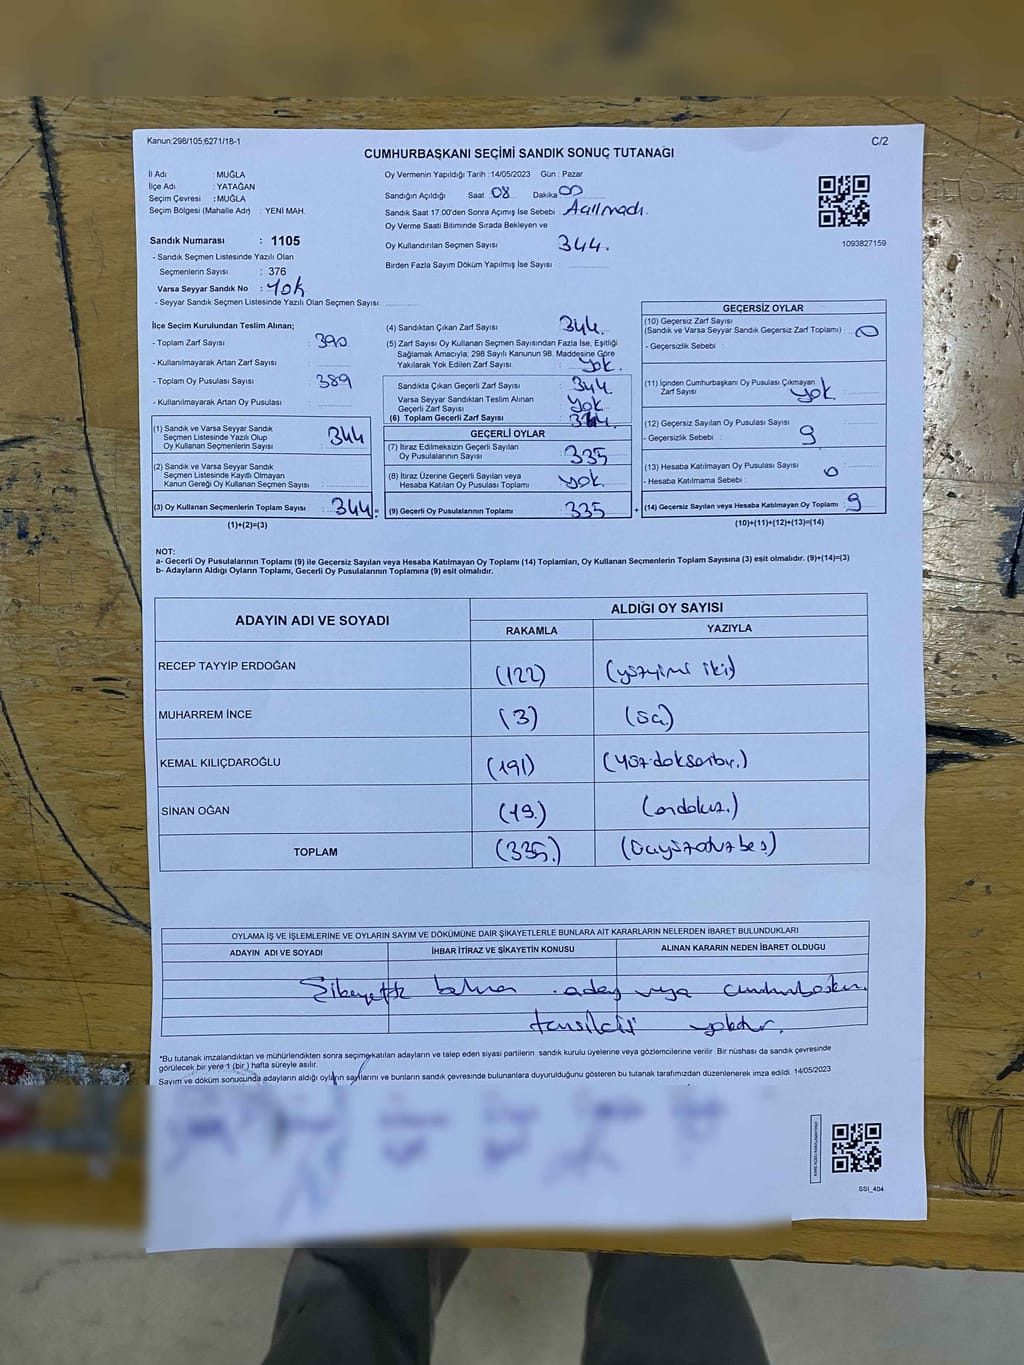 Kanun:298/105;6271/18-1
C/2
CUMHURBAŞKANI SEÇİMİ SANDIK SONUÇ TUTANAĞI
İl Adı : MUĞLA
İlçe Adı : YATAĞAN
Seçim Çevresi : MUĞLA
Seçim Bölgesi (Mahalle Adı) : YENİ MAH.
Sandık Numarası : 1105
- Sandık Seçmen Listesinde Yazılı Olan
Seçmenlerin Sayısı : 376
Varsa Seyyar Sandık No : Yok
- Seyyar Sandık Seçmen Listesinde Yazılı Olan Seçmen Sayısı:
Oy Vermenin Yapıldığı Tarih : 14/05/2023 Gün : Pazar
Sandığın Açıldığı Saat 08 Dakika 00
Sandık Saat 17:00'den Sonra Açımış İse Sebebi : Açılmadı.
Oy Verme Saati Bitiminde Sırada Bekleyen ve
Oy Kullandırılan Seçmen Sayısı 344.
Birden Fazla Sayım Döküm Yapılmış İse Sayısı :
1093827159
İlçe Seçim Kurulundan Teslim Alınan;
- Toplam Zarf Sayısı : 390
- Kullanılmayarak Artan Zarf Sayısı :
- Toplam Oy Pusulası Sayısı : 389
- Kullanılmayarak Artan Oy Pusulası :
(1) Sandık ve Varsa Seyyar Sandık
Seçmen Listesinde Yazılı Olup
Oy Kullanan Seçmenlerin Sayısı : 344
(2) Sandık ve Varsa Seyyar Sandık
Seçmen Listesinde Kayıtlı Olmayan
Kanun Gereği Oy Kullanan Seçmen Sayısı :
(3) Oy Kullanan Seçmenlerin Toplam Sayısı : 344 =
(1)+(2)=(3)
(4) Sandıktan Çıkan Zarf Sayısı : 344.
(5) Zarf Sayısı Oy Kullanan Seçmen Sayısından Fazla İse, Eşitliği
Sağlamak Amacıyla; 298 Sayılı Kanunun 98. Maddesine Göre
Yakılarak Yok Edilen Zarf Sayısı : yok.
Sandıkta Çıkan Geçerli Zarf Sayısı : 344
Varsa Seyyar Sandıktan Teslim Alınan
Geçerli Zarf Sayısı : yok
(6) Toplam Geçerli Zarf Sayısı : 344.
GEÇERLİ OYLAR
(7) İtiraz Edilmeksizin Geçerli Sayılan
Oy Pusulalarının Sayısı : 335
(8) İtiraz Üzerine Geçerli Sayılan veya
Hesaba Katılan Oy Pusulası Toplamı : yok.
(9) Geçerli Oy Pusulalarının Toplamı : 335 +
GEÇERSİZ OYLAR
(10) Geçersiz Zarf Sayısı
(Sandık ve Varsa Seyyar Sandık Geçersiz Zarf Toplamı) : 0
- Geçersizlik Sebebi :
(11) İçinden Cumhurbaşkanı Oy Pusulası Çıkmayan
Zarf Sayısı : yok.
(12) Geçersiz Sayılan Oy Pusulası Sayısı : 9
- Geçersizlik Sebebi :
(13) Hesaba Katılmayan Oy Pusulası Sayısı : 0
- Hesaba Katılmama Sebebi :
(14) Geçersiz Sayılan veya Hesaba Katılmayan Oy Toplamı : 9
(10)+(11)+(12)+(13)=(14)
NOT:
a- Geçerli Oy Pusulalarının Toplamı (9) ile Geçersiz Sayılan veya Hesaba Katılmayan Oy Toplamı (14) Toplamları, Oy Kullanan Seçmenlerin Toplam Sayısına (3) eşit olmalıdır. (9)+(14)=(3)
b- Adayların Aldığı Oyların Toplamı, Geçerli Oy Pusulalarının Toplamına (9) eşit olmalıdır.
ADAYIN ADI VE SOYADI ALDIĞI OY SAYISI
RAKAMLA YAZIYLA
RECEP TAYYİP ERDOĞAN (122) (yüzyirmi iki)
MUHARREM İNCE (3) (üç)
KEMAL KILIÇDAROĞLU (191) (yüz doksanbir.)
SİNAN OĞAN (19.) (ondokuz.)
TOPLAM (335.) (üçyüzotuzbeş)
OYLAMA İŞ VE İŞLEMLERİNE VE OYLARIN SAYIM VE DÖKÜMÜNE DAİR ŞİKAYETLERLE BUNLARA AİT KARARLARIN NELERDEN İBARET BULUNDUKLARI
ADAYIN ADI VE SOYADI İHBAR İTİRAZ VE ŞİKAYETİN KONUSU ALINAN KARARIN NEDEN İBARET OLDUĞU
Şikayette bulunan aday veya cumhurbaşkanı
temsilcisi yoktur.
*Bu tutanak imzalandıktan ve mühürlendikten sonra seçime katılan adayların ve talep eden siyasi partilerin sandık kurulu üyelerine veya gözlemcilerine verilir. Bir nüshası da sandık çevresinde
görülecek bir yere 1 (bir) hafta süreyle asılır.
Sayım ve döküm sonucunda adayların aldığı oyların sayılarını ve bunların sandık çevresinde bulunanlara duyurulduğunu gösteren bu tutanak tarafımızdan düzenlenerek imza edildi. 14/05/2023
SSI_404